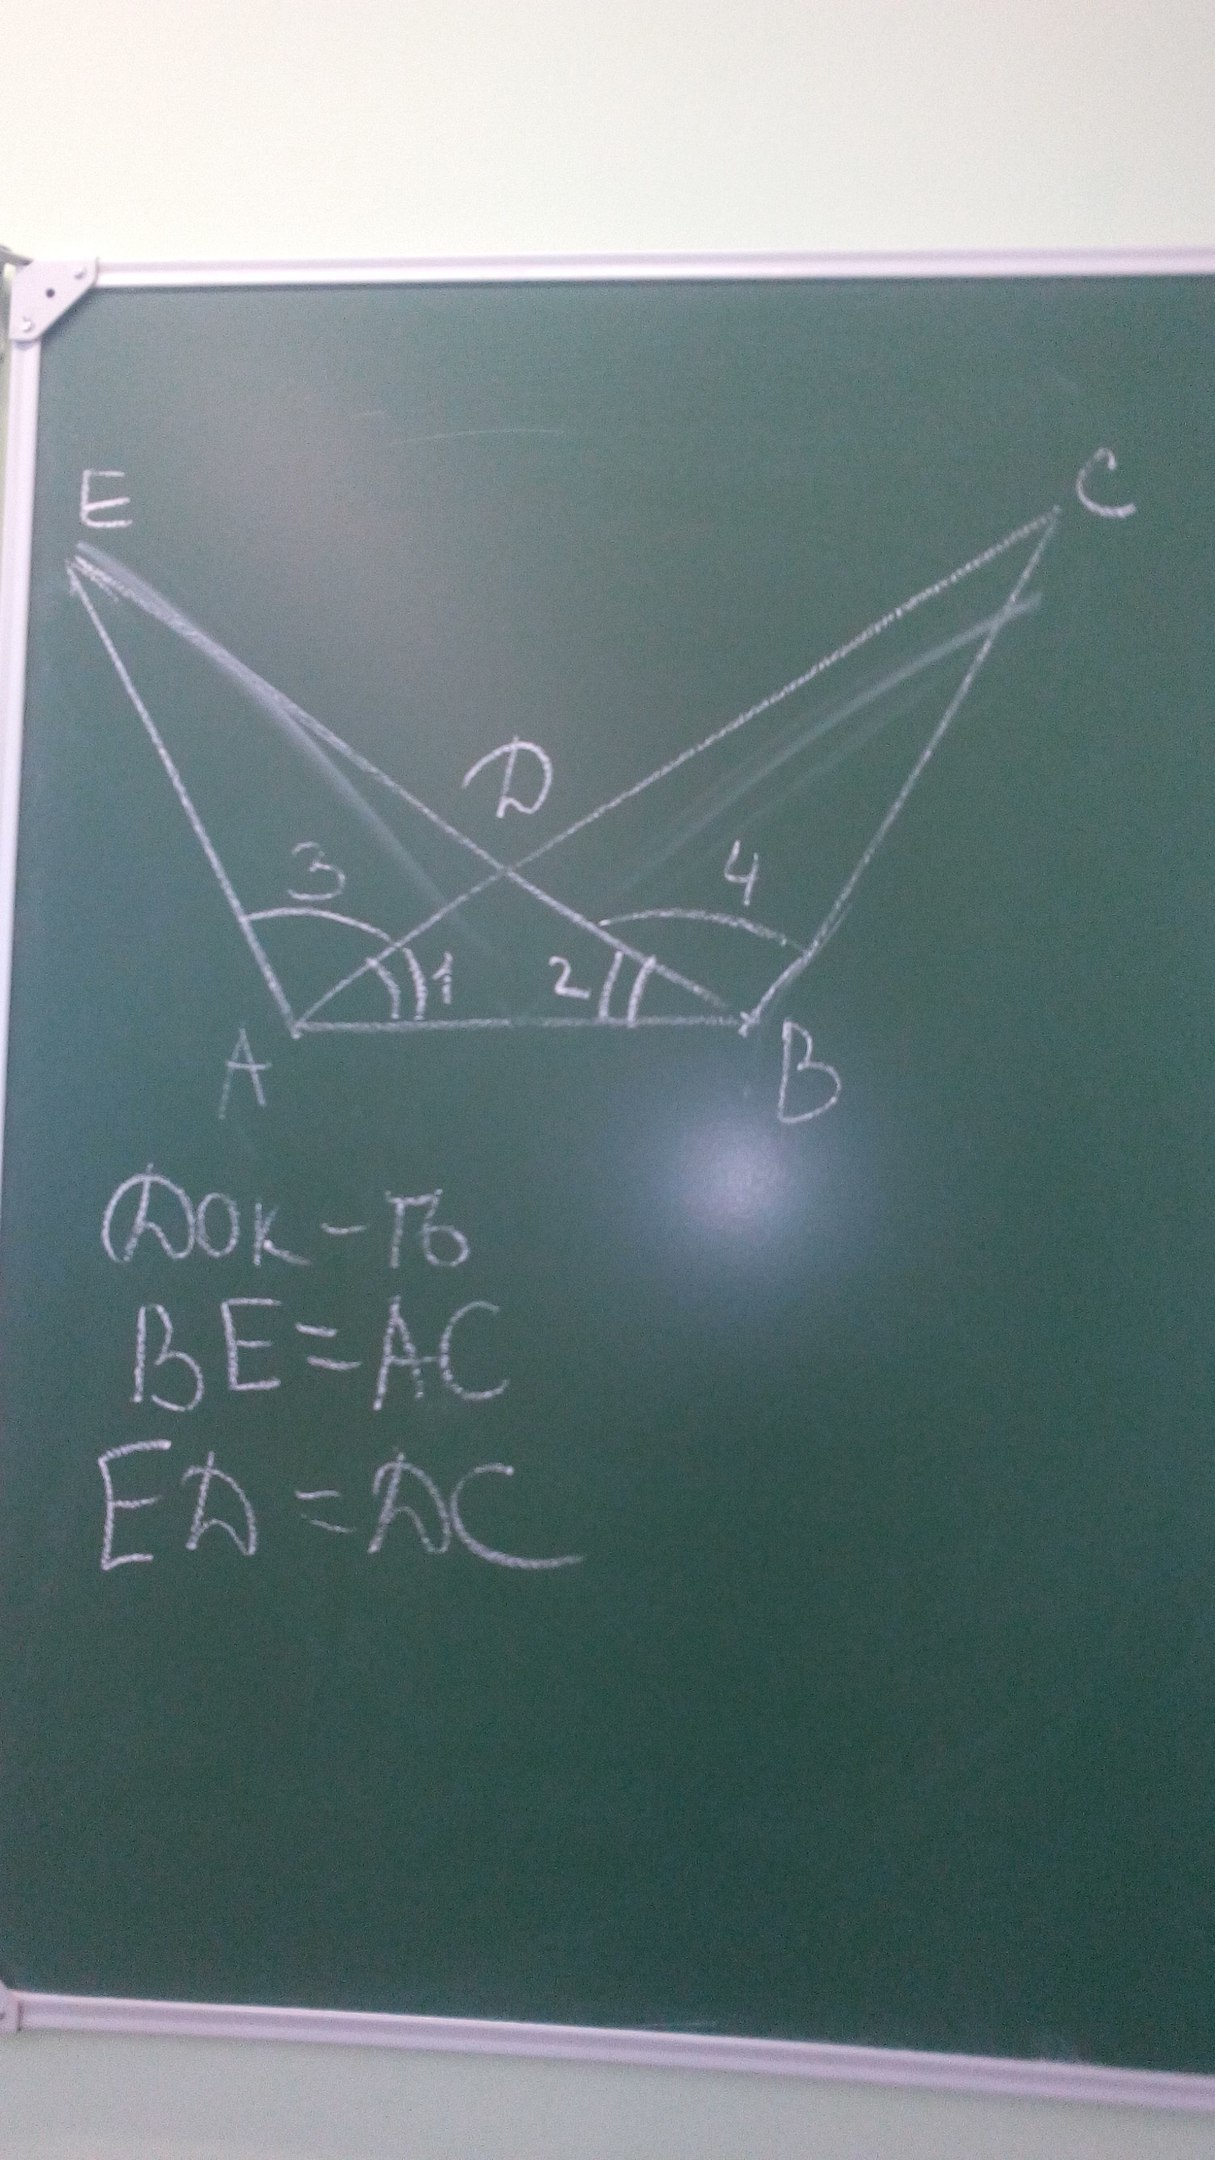 E
C
D
3
4
1
2
A
B
Док-ть
BE=AC
ED=DC